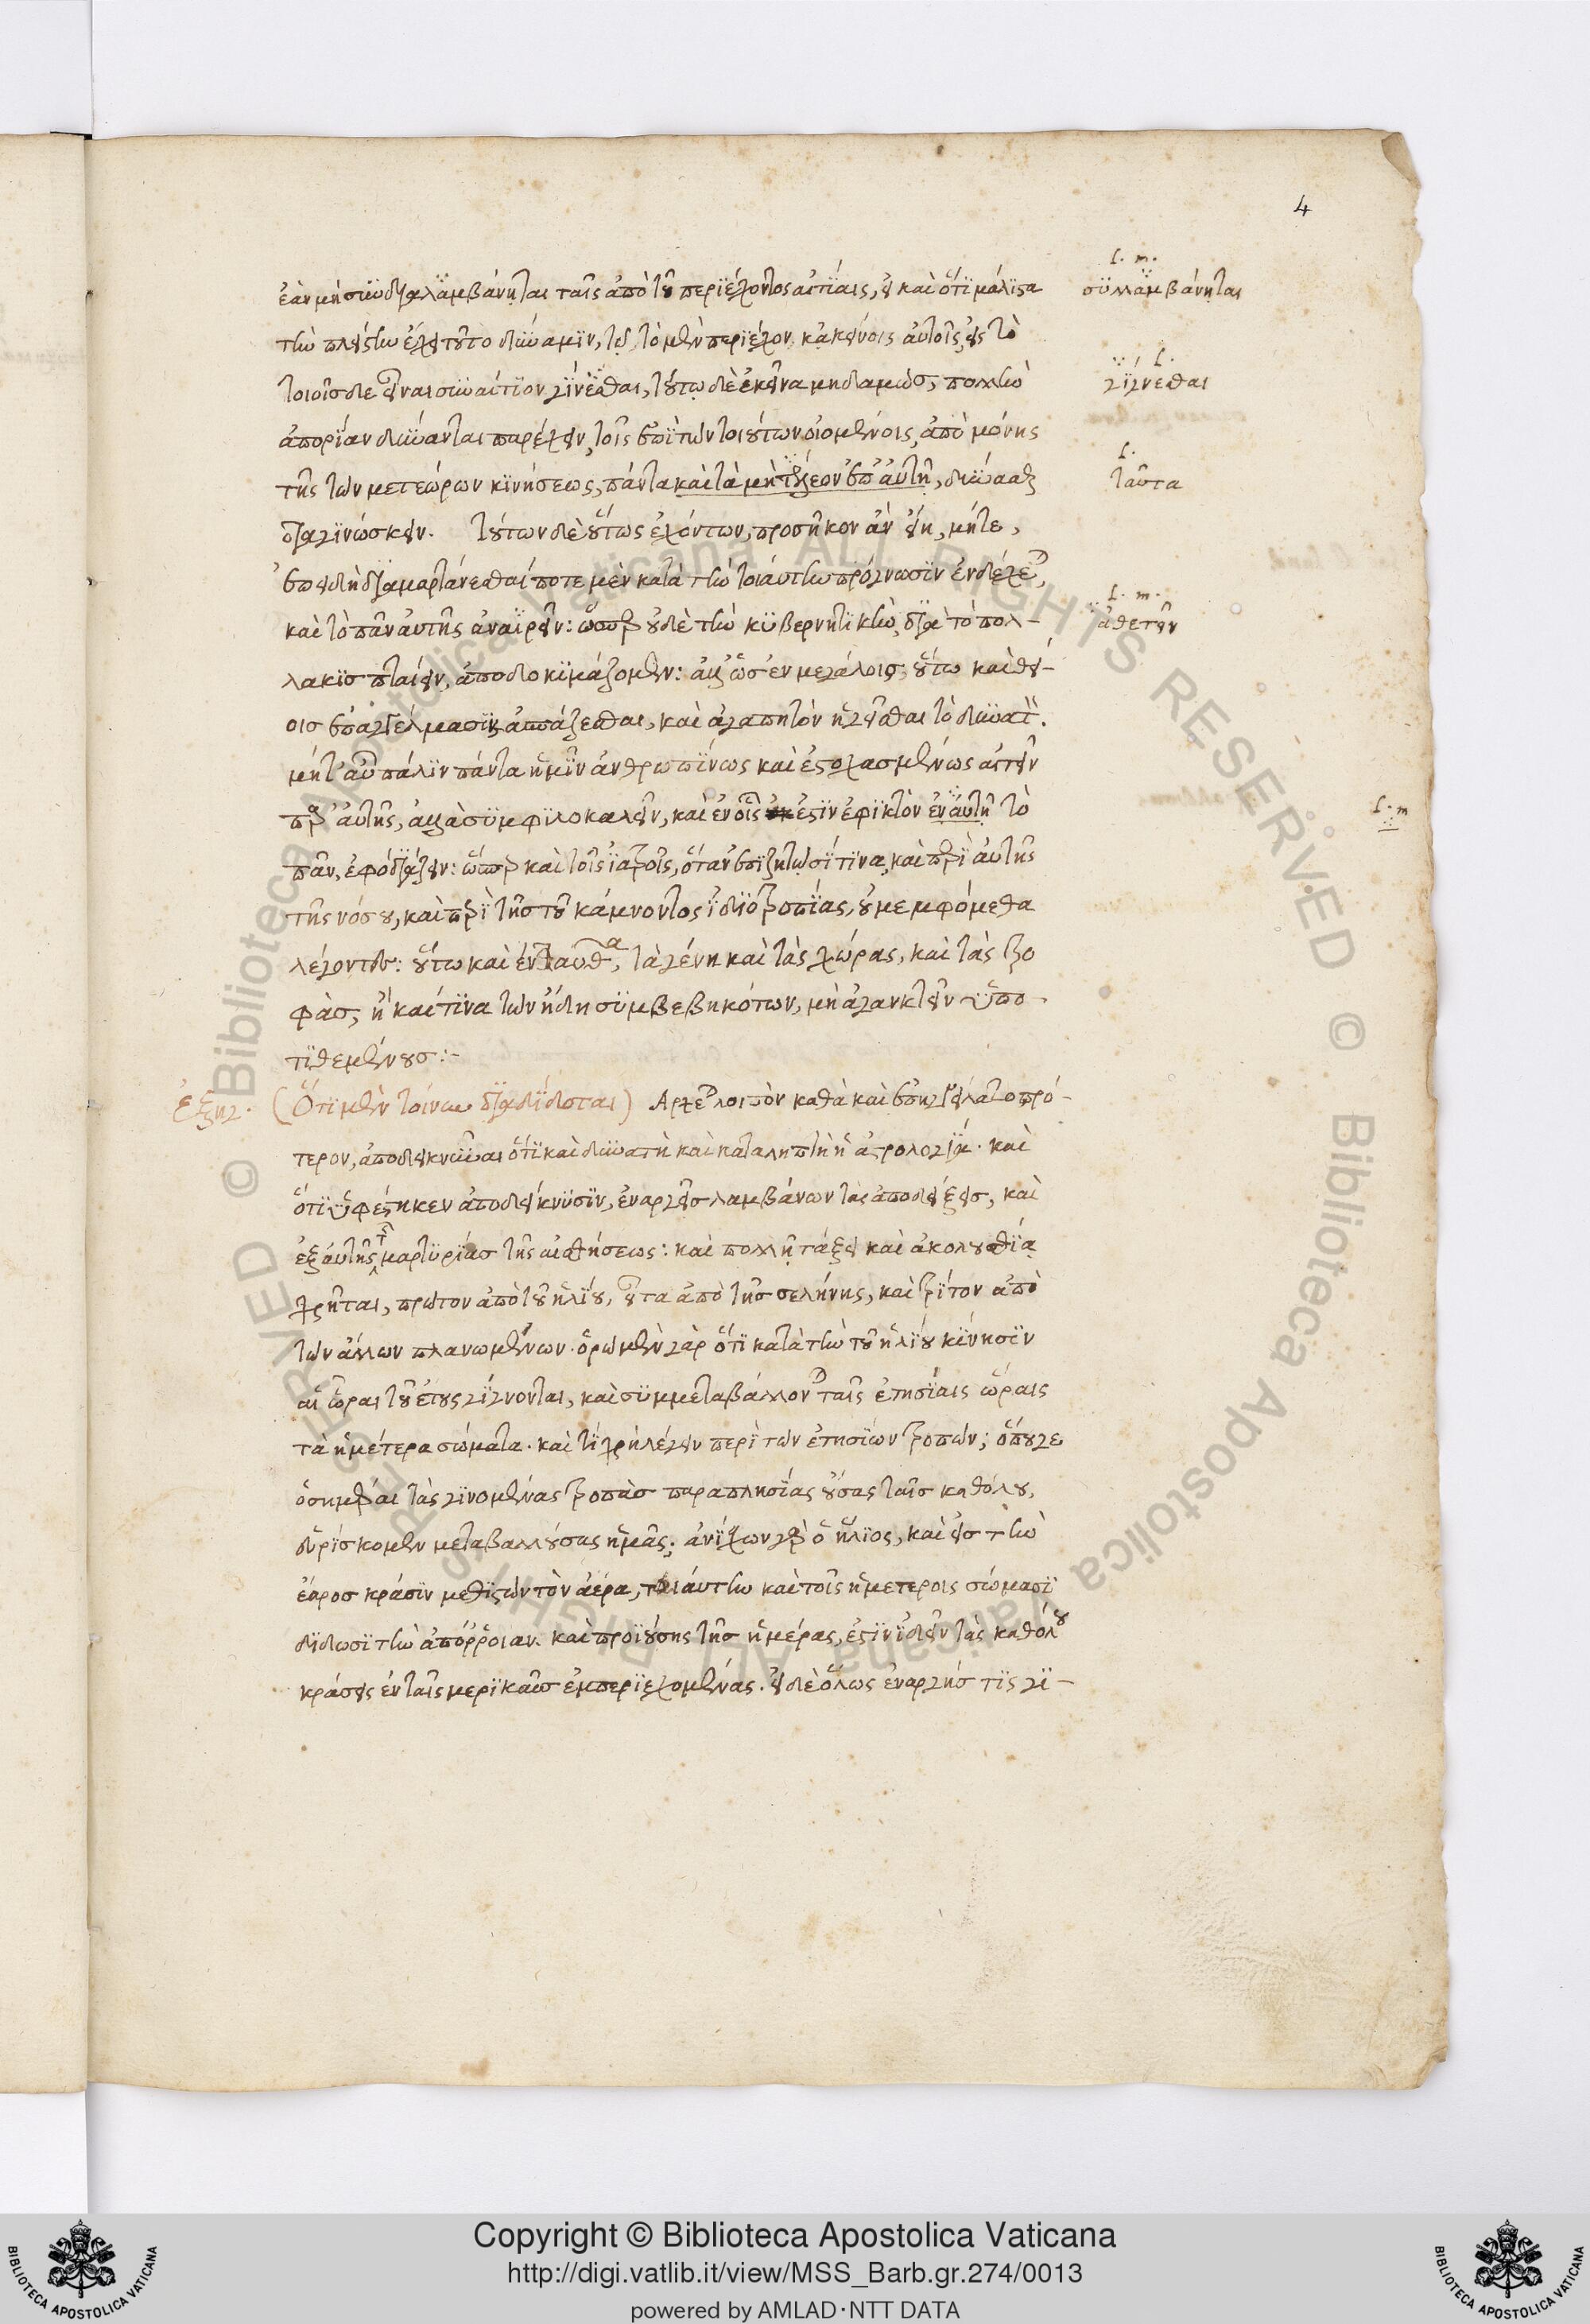 4
ἐὰν μὴ συνδιαλαμβάνηται ταῖς ἀπὸ τοῦ περιέχοντος αἰτίαις, εἰ καὶ ὅτι μάλιστα
l. m.
συλλαμβάνηται
τὴν πλείστην ἔχει τοῦτο δύναμιν, τῷ τὸ μὲν περιέχον, κἀκείνοις αὐτοῖς εἰς τὸ
τοιοῖσδε εἶναι συναίτιον γίνεσθαι, τούτῳ δὲ ἐκεῖνα μηδαμῶς, πολλὴν
l.
γίγνεσθαι
ἀπορίαν δύνανται παρέχειν, τοῖς ἐπὶ τῶν τοιούτων οἰομένοις, ἀπὸ μόνης
τῆς τῶν μετεώρων κινήσεως, πάντα καὶ τὰ μὴ τέλεον ἐπ' αὐτῇ, δύνασθαι
l.
ταῦτα
διαγινώσκειν. τούτων δὲ οὕτως ἐχόντων, προσῆκον ἂν εἴη, μήτε,
ἐπειδὴ διαμαρτάνεσθαί ποτε μὲν κατὰ τὴν τοιαύτην πρόγνωσιν ἐνδέχεται,
καὶ τὸ πᾶν αὐτῆς ἀναιρεῖν: ὥσπερ οὐδὲ τὴν κυβερνητικὴν, διὰ τὸ πολ-
l. m.
ἀθετεῖν
λάκις πταίειν, ἀποδοκιμάζομεν: ἀλλ' ὡς ἐν μεγάλοις, οὕτω καὶ θεί-
οις ἐπαγγέλμασιν ἀσπάζεσθαι, καὶ ἀγαπητὸν ἡγεῖσθαι τὸ δυνατὸν.
μήτ' αὖ πάλιν πάντα ἡμῖν ἀνθρωπίνως καὶ ἐστοχασμένως αἰτεῖν
παρ' αὐτῆς, ἀλλὰ συμφιλοκαλεῖν, καὶ ἐν οἷς ἔστιν ἐφικτὸν ἐν αὐτῇ τὸ
l. m
πᾶν, ἐφοδιάζειν: ὥσπερ καὶ τοῖς ἰατροῖς, ὅταν ἐπιζητῶσί τινα, καὶ περὶ αὐτῆς
τῆς νόσου, καὶ περὶ τῆς τοῦ κάμνοντος ἰδιοτροπίας, οὐ μεμφόμεθα
λέγοντες: οὕτω καὶ ἐνταῦθα, τὰ γένη καὶ τὰς χώρας, καὶ τὰς τρο
φὰς, ἢ καί τινα τῶν ἤδη συμβεβηκότων, μὴ ἀγανακτεῖν ὑπο-
τιθεμένους:-
ἐξηγ. (Ὅτι μὲν τοίνυν διαδίδοται) Ἄρχεται λοιπὸν καθὰ καὶ ἐπηγγείλατο πρό-
τερον, ἀποδεικνύναι ὅτι καὶ δυνατὴ καὶ καταληπτὴ ἡ ἀστρολογία. καὶ
ὅτι ὑφέστηκεν ἀποδείκνυσιν, ἐναργεῖς λαμβάνων τὰς ἀποδείξεις, καὶ
ἐξ αὐτῆς τῆς μαρτυρίας τῆς αἰσθήσεως: καὶ πολλῇ τάξει καὶ ἀκολουθίᾳ
χρῆται, πρῶτον ἀπὸ τοῦ ἡλίου, εἶτα ἀπὸ τῆς σελήνης, καὶ τρίτον ἀπὸ
τῶν ἄλλων πλανωμένων. ὁρῶμεν γὰρ ὅτι κατὰ τὴν τοῦ ἡλίου κίνησιν
αἱ ὧραι τοῦ ἔτους γίγνονται, καὶ συμμεταβάλλονται ταῖς ἐτησίαις ὥραις
τὰ ἡμέτερα σώματα. καὶ τί χρὴ λέγειν περὶ τῶν ἐτησίων τροπῶν; ὅπου γε
ὁσημέραι τὰς γινομένας τροπὰς παραπλησίας οὔσας ταῖς καθόλου,
εὑρίσκομεν μεταβαλλούσας ἡμᾶς; ἀνίσχων γὰρ ὁ ἥλιος, καὶ εἰς τὴν
ἔαρος κρᾶσιν μεθιστῶν τὸν ἀέρα, τοιαύτην καὶ τοῖς ἡμετέροις σώμασι
δίδωσι τὴν ἀπόρροιαν. καὶ προϊούσης τῆς ἡμέρας, ἔστιν ἰδεῖν τὰς καθόλου
κράσεις ἐν ταῖς μερικαῖς ἐμπεριεχομένας. εἰ δὲ ὅλως ἐναργής τις γί-
Copyright © Biblioteca Apostolica Vaticana
http://digi.vatlib.it/view/MSS_Barb.gr.274/0013
powered by AMLAD·NTT DATA